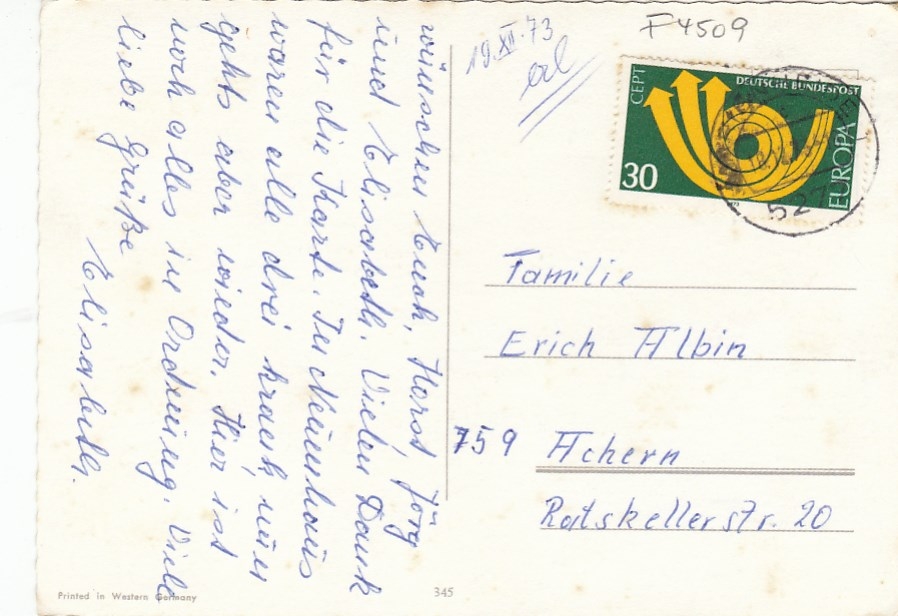 wünschen Euch, Horst, Jörg
und Elisabeth. Vielen Dank
für die Karte. In Neuenhaus
waren alle drei krank, nun
gehts aber wieder. Hier ist
noch alles in Ordnung. Viele
liebe Grüße
Elisabeth.
19.XII.73
F4509
CEPT
DEUTSCHE BUNDESPOST
30
EUROPA
527
Familie
Erich Albin
759 Achern
Ratskellerstr. 20
Printed in Western Germany
345